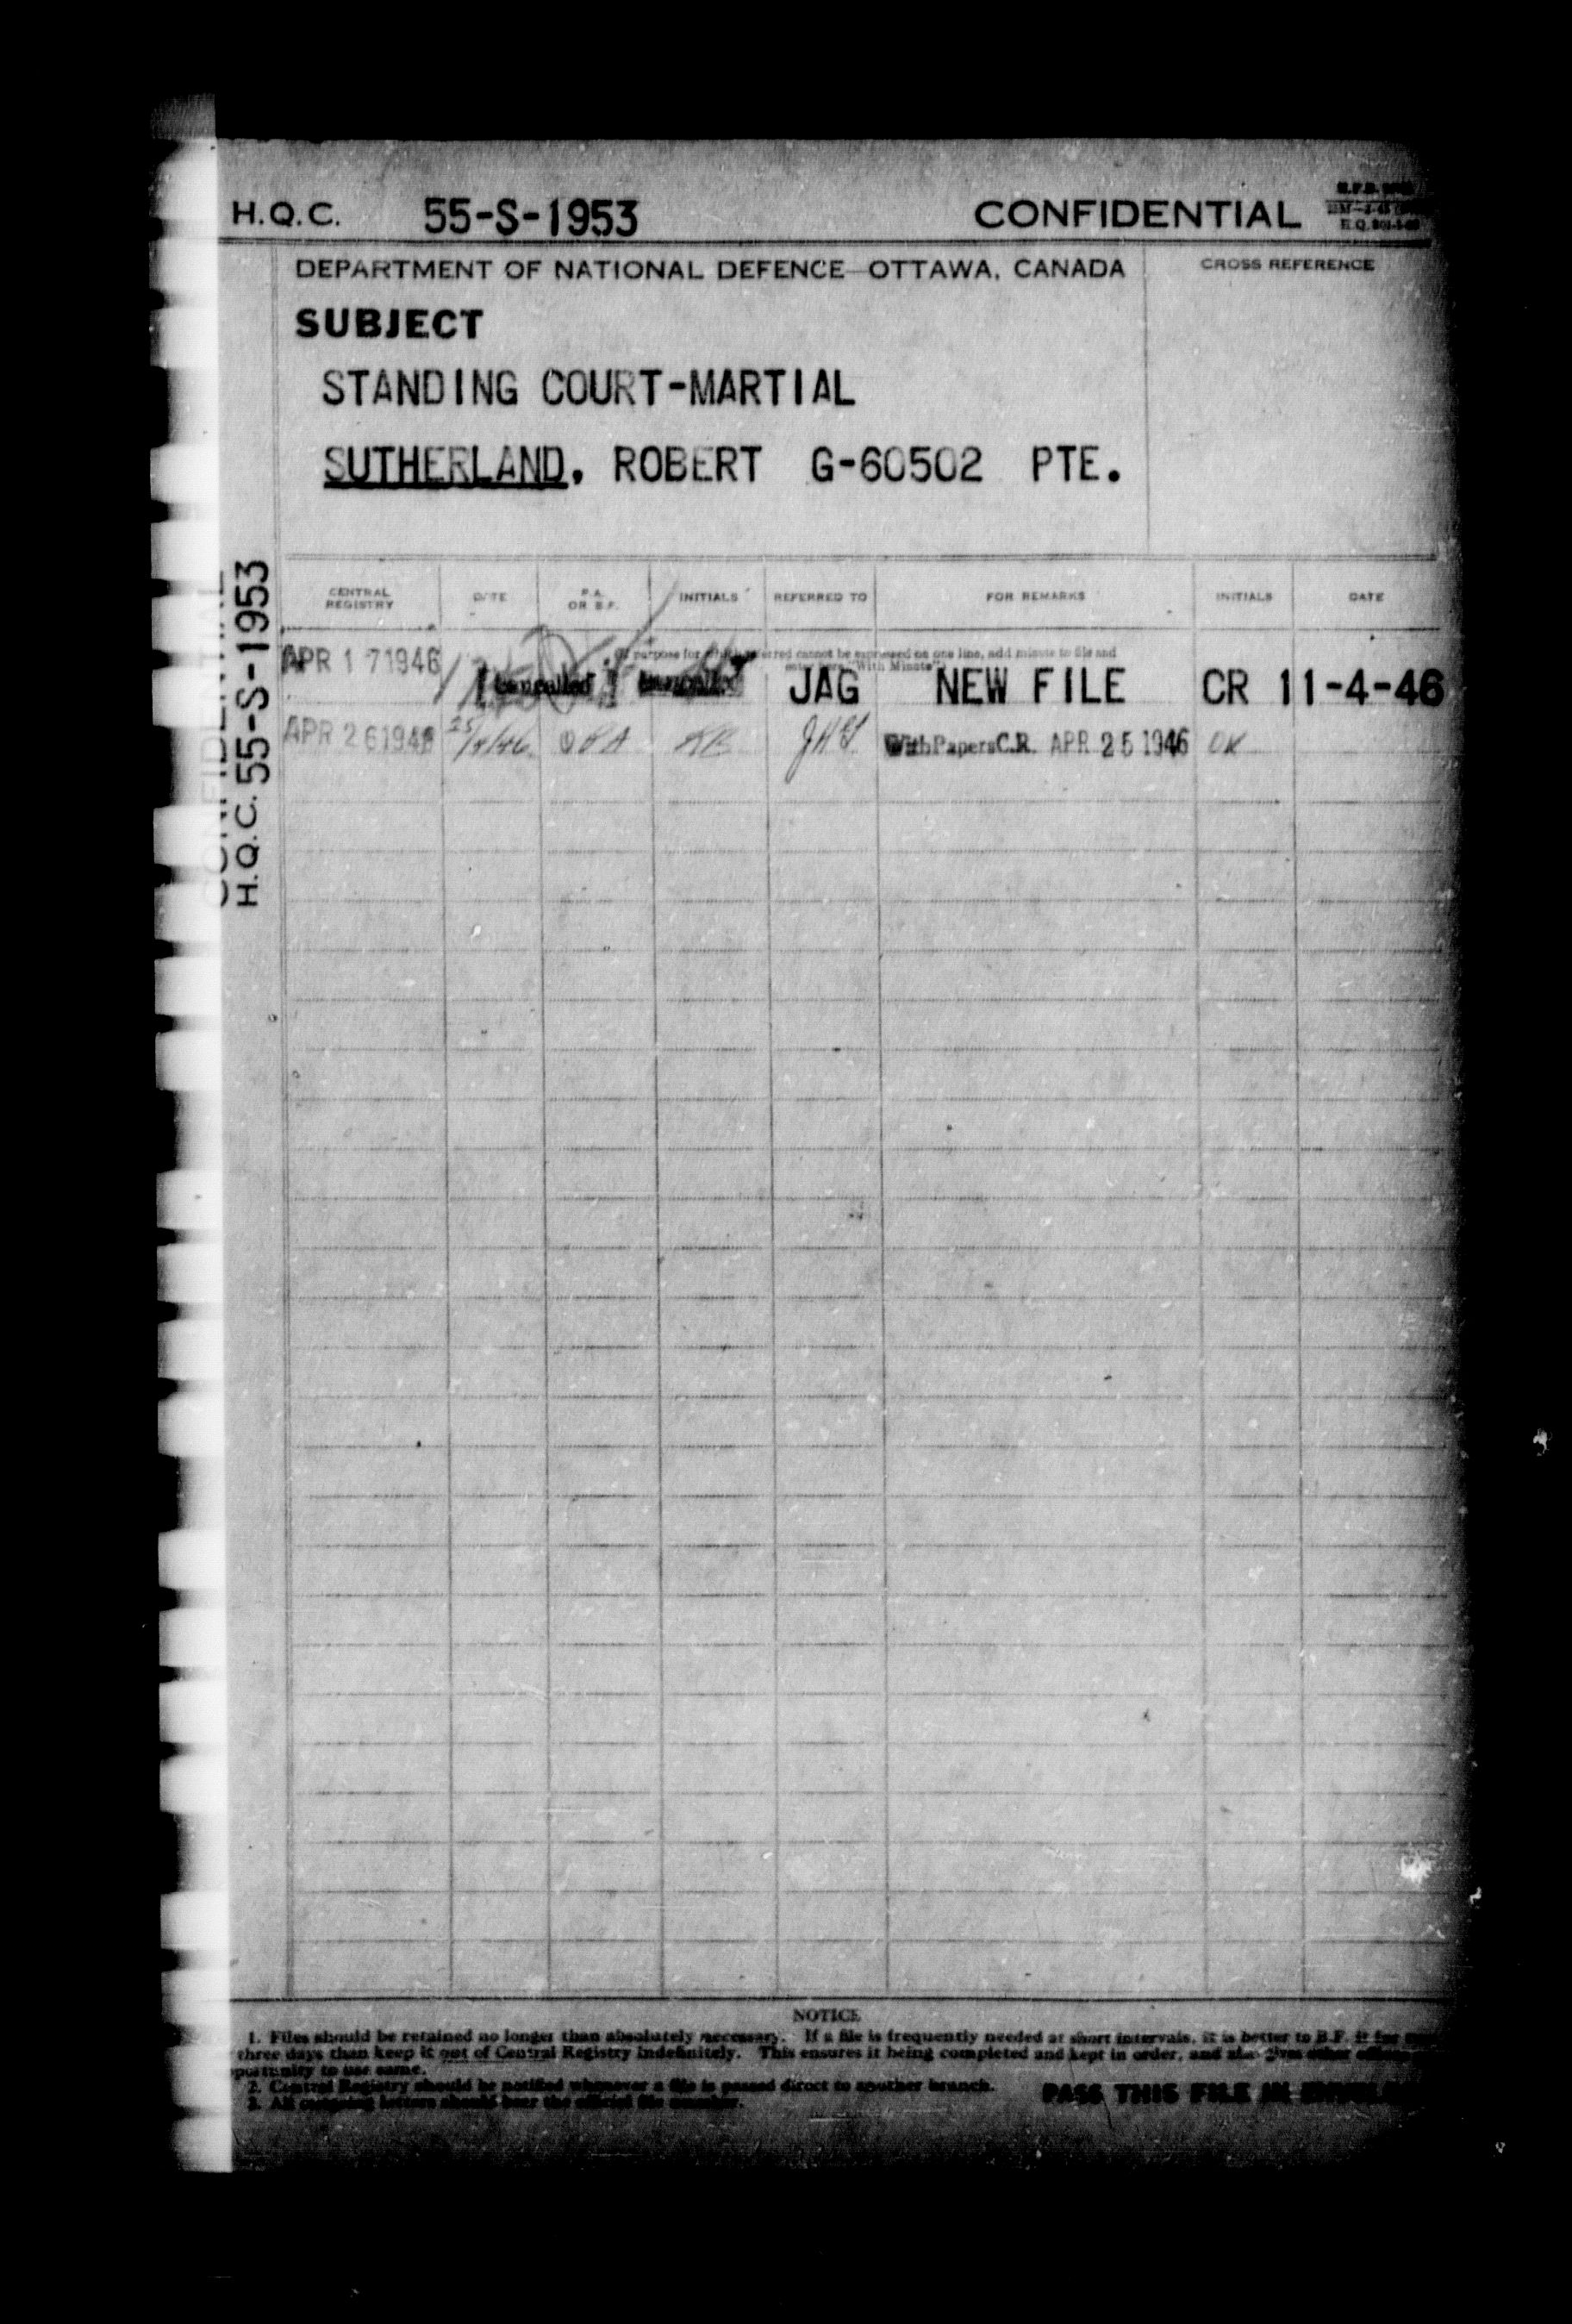 H.Q.C. 55-S-1953 CONFIDENTIAL
DEPARTMENT OF NATIONAL DEFENCE—OTTAWA, CANADA CROSS REFERENCE
SUBJECT
STANDING COURT-MARTIAL
SUTHERLAND, ROBERT G-60502 PTE.
H.Q.C. 55-S-1953
CENTRAL REGISTRY DATE P.A. OR B.F. INITIALS REFERRED TO FOR REMARKS INITIALS DATE
If purpose for which referred cannot be expressed on one line, add minute to file and
enter here "With Minute"
APR 17 1946 Cancelled Cancelled JAG NEW FILE CR 11-4-46
APR 26 1946 25/4/46 PA JAG With Papers C.R. APR 25 1946
NOTICE
1. Files should be retained no longer than absolutely necessary. If a file is frequently needed at short intervals, it is better to B.F. it for
three days than keep it out of Central Registry indefinitely. This ensures it being completed and kept in order, and also gives other
opportunity to use same.
2. Central Registry should be notified whenever a file is passed direct to another branch.
3. All outgoing letters should bear the official file number.
PASS THIS FILE IN